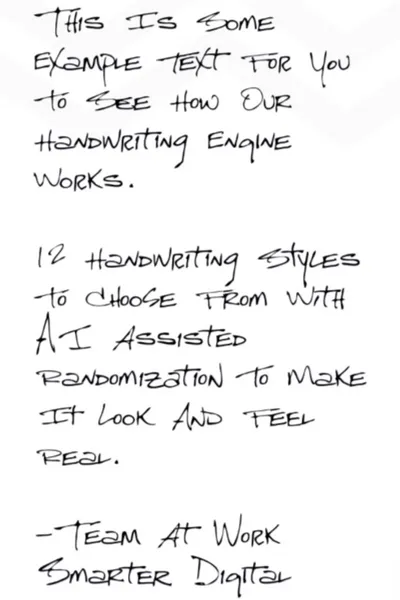 This Is Some
Example Text For You
to See How Our
Handwriting Engine
Works.
12 Handwriting Styles
to Choose From With
AI Assisted
Randomization to Make
It Look And Feel
Real.
-Team At Work
Smarter Digital